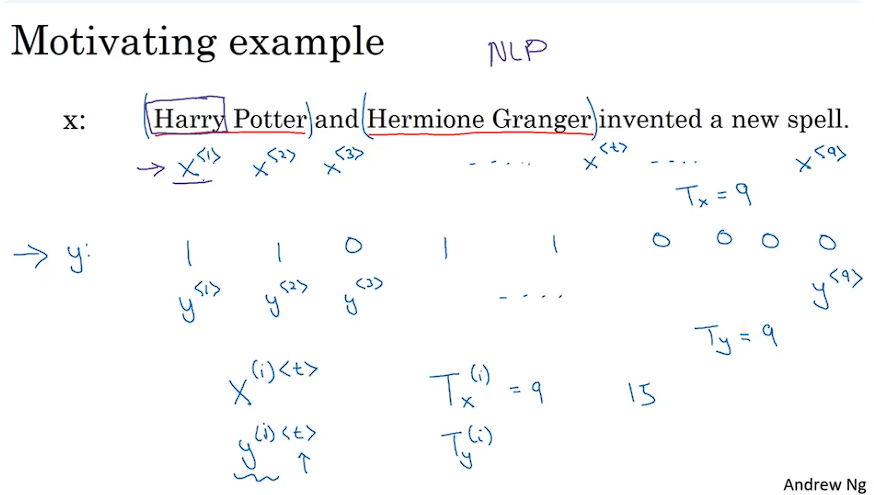 Motivating example NLP
x: (Harry Potter) and (Hermione Granger) invented a new spell.
→ x<1> x<2> x<3> ..... x<t> .... x<9>
Tx = 9
→ y: 1 1 0 1 1 0 0 0 0
y<1> y<2> y<3> .... y<9>
Ty = 9
X(i)<t> Tx(i) = 9 15
y(i)<t> ↑ Ty(i)
Andrew Ng